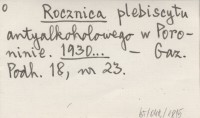 o
Rocznica plebiscytu
antyalkoholowego w Poro-
ninie. 1930... – Gaz.
Podh. 18, nr 23.